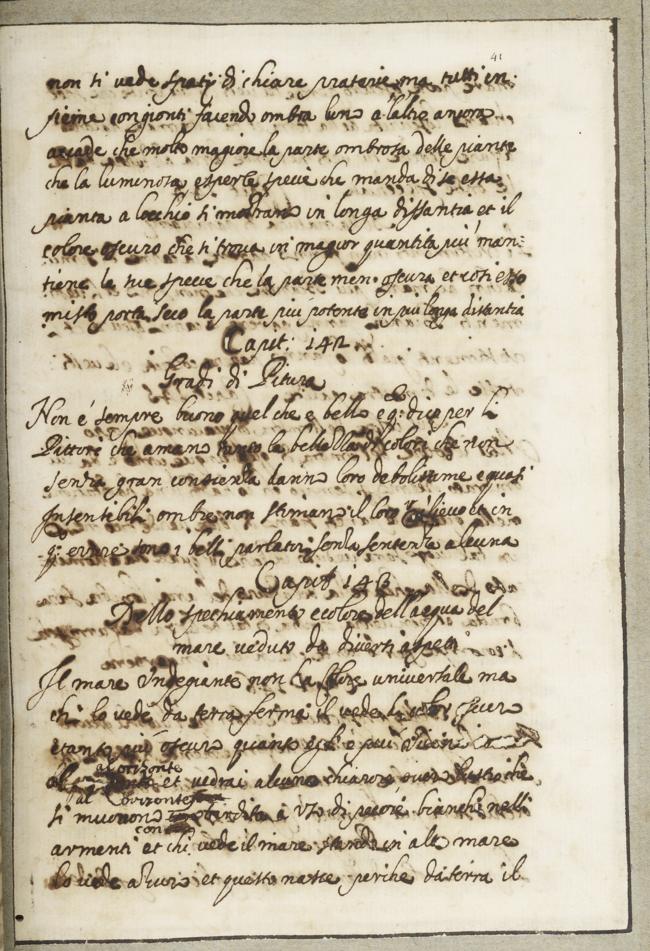 41
non si vede spatij di chiare praterie ma tutti in:
sieme congionti facendo ombra luno a laltro ancora
accade che molto magiore la parte ombrosa delle piante
che la luminosa et per le specie che manda di se essa
pianta a locchio si mostrano in longa disstantia et il
colore oscuro che si trova in magior quantita piu man:
tiene le sue specie che la parte men oscura et cosi esso
misto porta seco la parte piu potente in piu longa distantia
Capit. 142
Gradi di Pitura
Non é sempre buono quel che e bello e qo dico per li
Pittori che amano tanto la bellezza di colori che non
senza gran conscienza danno loro debolissime e quasi
Insensibili ombre non stimano il loro rilievo et in
qo errore sono i belli parlatori senza sentenza alcuna
Capit. 143
Dello spechiamento e colore dell acqua del
mare veduto da diversi aspetti
Il mare Ondegiante non ha colore universale ma
chi lo vede da terra ferma il vede di colore oscuro
e tanto piu oscuro quanto egli é piu vicino
al orizonte
et vedrai alcuno chiarore over lustro che
al Orizonte
si muovono tardita a uso di pecore bianche nelli
con
armenti et chi vede il mare stando in alto mare
lo vede azuro et questo nasce perche da terra il